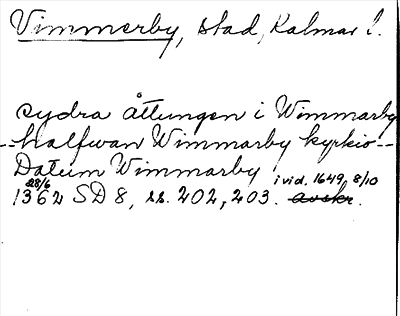 Vimmerby, stad, Kalmar l.
sydra åttungen i Wimmarby
--halfwan Wimmarby kyrkio--
Datum Wimmarby
i vid. 1649 8/10
28/6
1362 SD 8, ss. 202, 203. avskr.